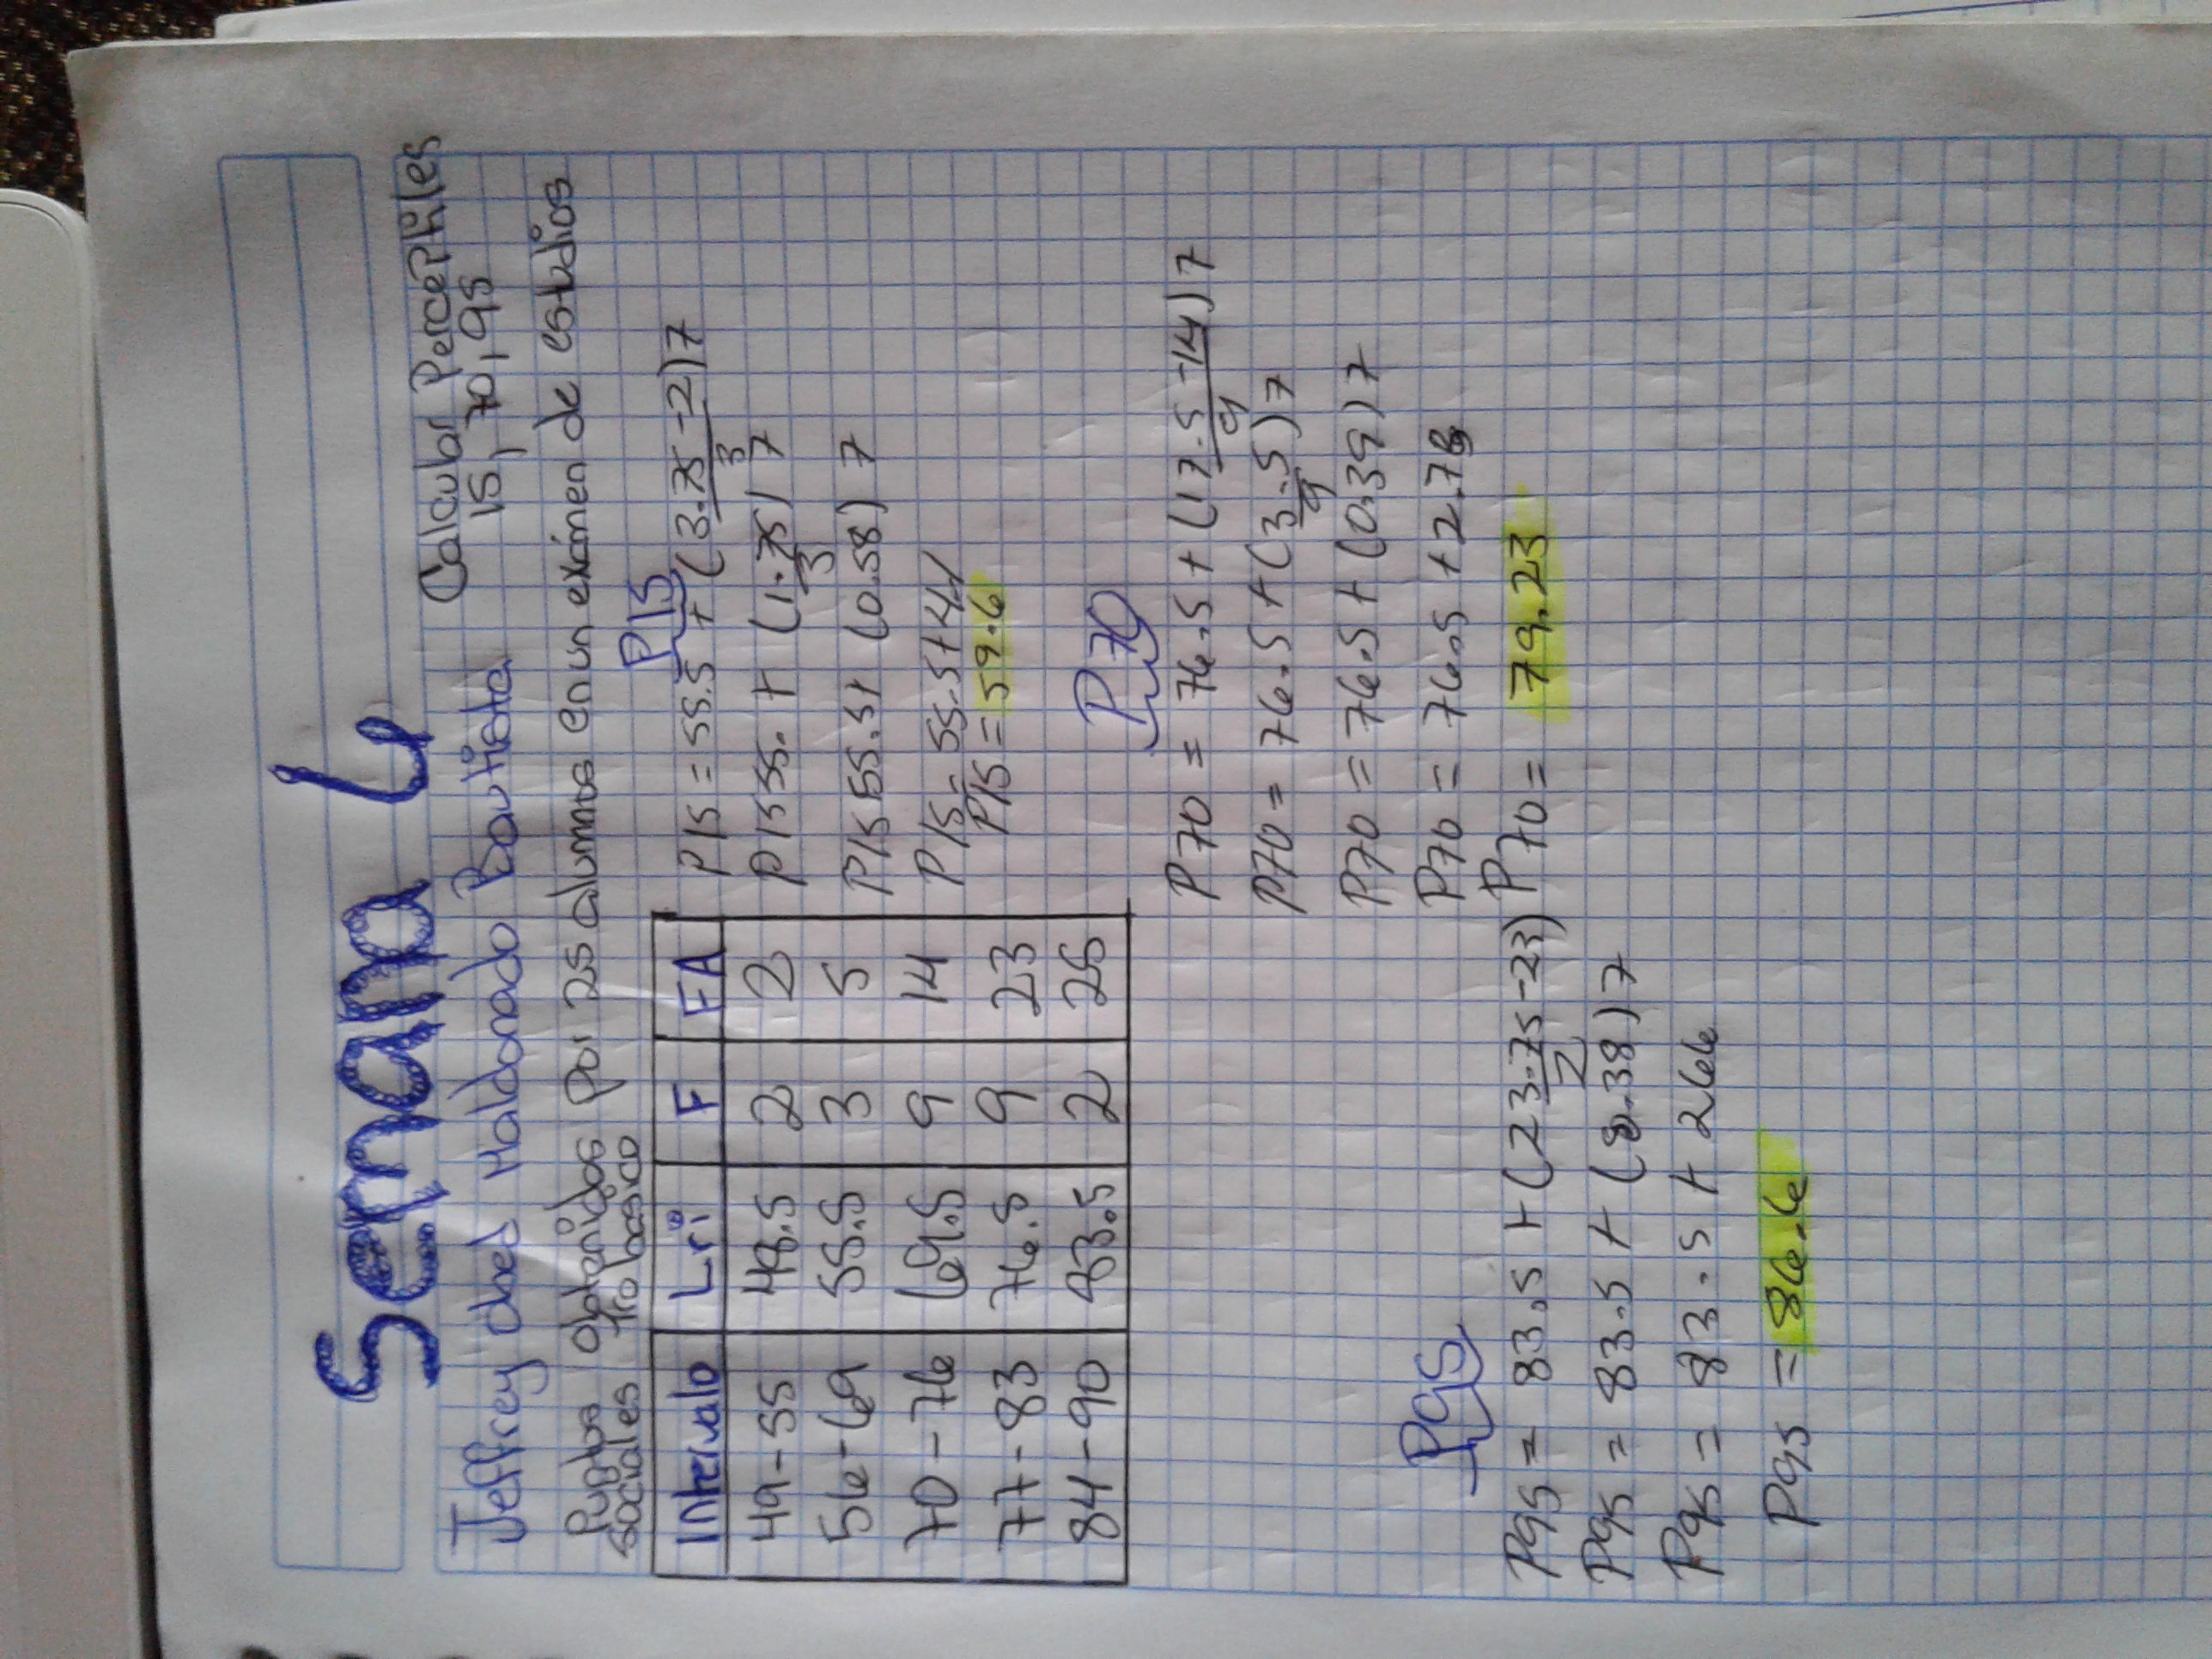 Semana 6
Jeffrey Obed Maldonado Bautista
Calcular Percéptiles
15, 70, 95
Puntos obtenidos por 25 alumnos en un exámen de estudios
sociales 4to basico
Intervalo Lri F FA
49-55 48.5 2 2
56-69 55.5 3 5
70-76 69.5 9 14
77-83 76.5 9 23
84-90 83.5 2 25
P15
P15=55.5 + (3.75-2)7
3
P15 55. + (1.75) 7
3
P15 55.5+ (0.58) 7
P15= 55.5+4.1
P15=59.6
P70
P70 = 76.5 + (17.5-14)7
9
P70= 76.5+(3.5)7
9
P70 =76.5+ (0.39)7
P70 = 76.5 +2.73
P70= 79.23
P95
P95 = 83.5 + (23.75-23)
2
P95 = 83.5 + (0.38)7
P95 = 83.5 + 266
P95 =86.6